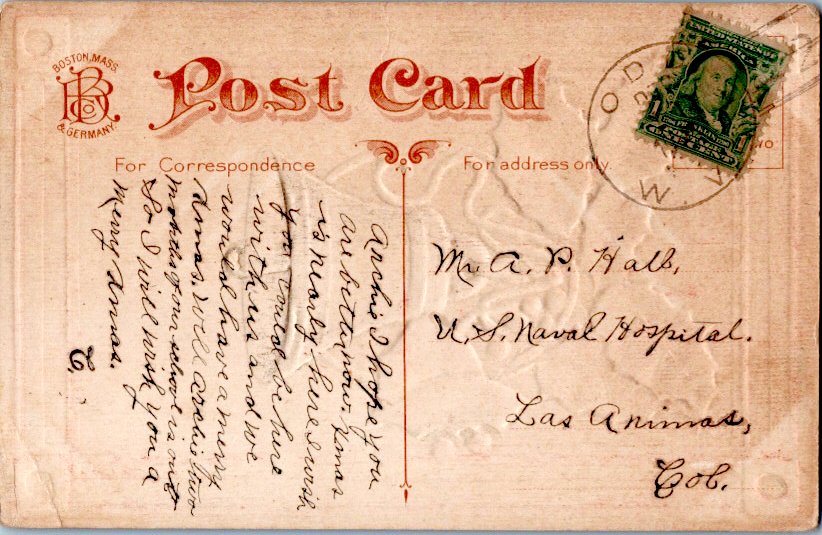 BOSTON, MASS.
& GERMANY.
Post Card
For Correspondence
For address only.
Archie I hope you
are better now. Xmas
is nearly here I wish
you could be here
with us and we
would have a merry
Xmas. Well Archie two
months of our school is out
So I will wish you a
Merry Xmas.
C.
Mr. A. P. Hall,
U. S. Naval Hospital.
Las Animas,
Col.
W. VA.
UNITED STATES OF
AMERICA
1 1
ONE CENT